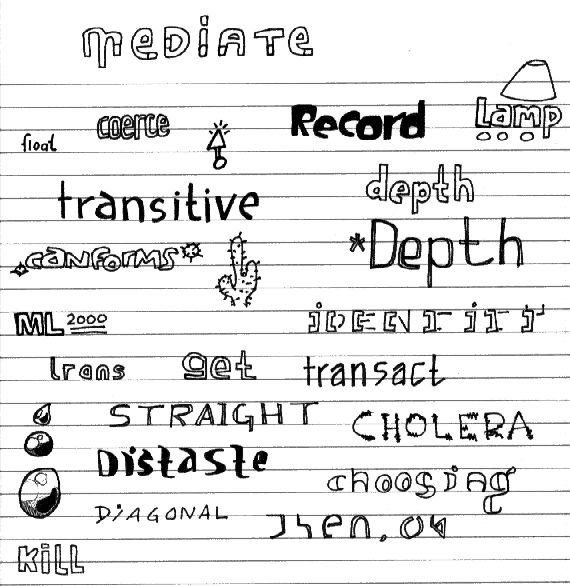 MEDiATE
coerce Record Lamp
float
transitive depth
canforms *Depth
ML 2000 iDENTiTY
trans get transact
STRAIGHT CHOLERA
Distaste choosing
DiAGONAL
Kill